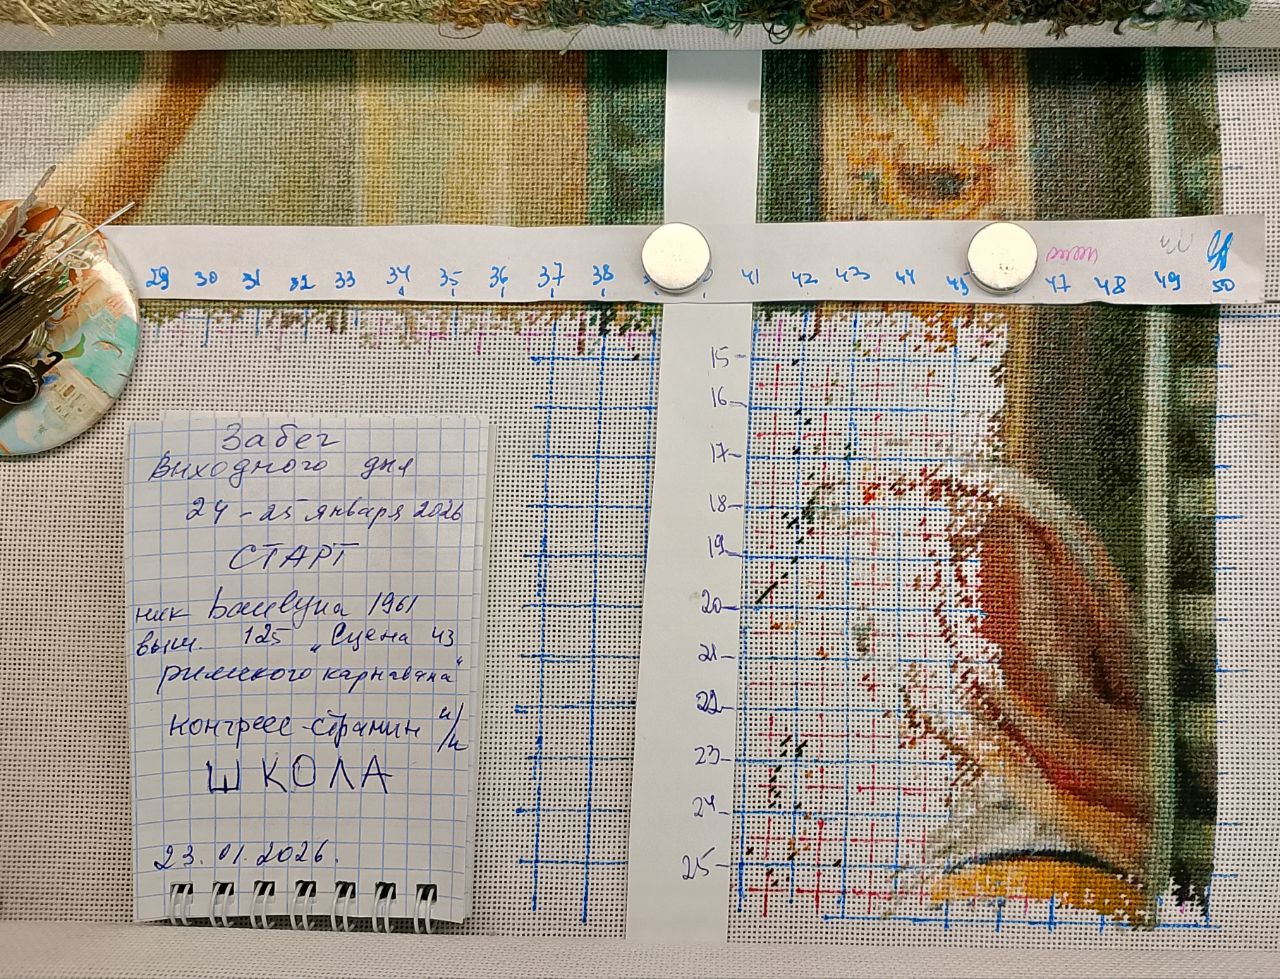 29 30 31 32 33 34 35 36 37 38 41 42 43 44 45 47 48 49 50
15
16
17
18
19
20
21
22
23
24
25
Забег
выходного дня
24-25 января 2026
СТАРТ
ник 1961
выш. 125 „Сцена из
римского карнавала"
конгресс-странин н/н
ШКОЛА
23.01.2026.